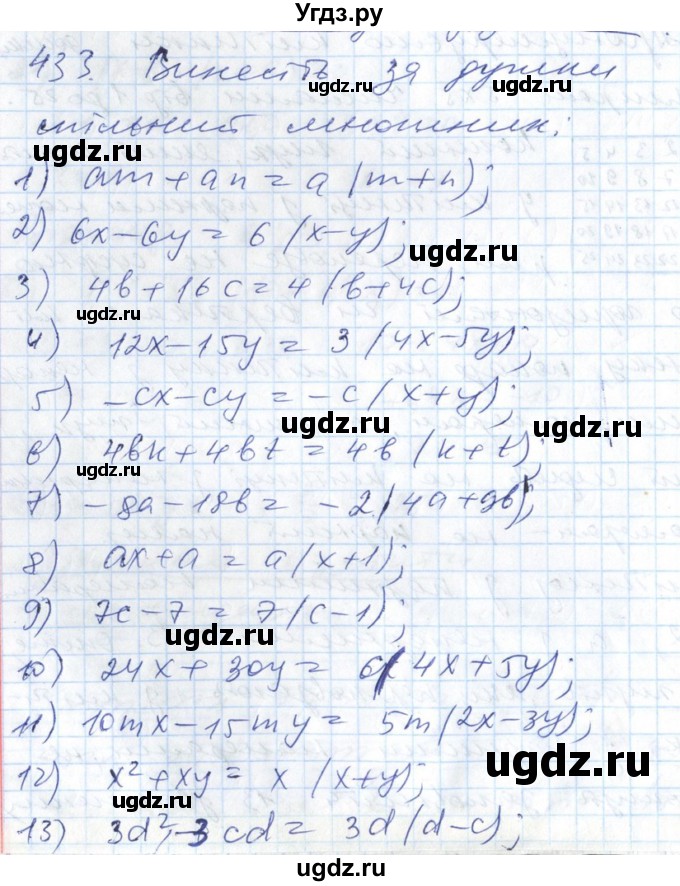 Угдз.ру
433. Винесіть за дужки
спільний множник:
1) am+an=a(m+n);
2) 6x-6y=6(x-y);
3) 4b+16c=4(b+4c);
4) 12x-15y=3(4x-5y);
5) -cx-cy=-c(x+y);
6) 4bk+4bt=4b(k+t);
7) -8a-18b=-2(4a+9b);
8) ax+a=a(x+1);
9) 7c-7=7(c-1);
10) 24x+30y=6(4x+5y);
11) 10mx-15my=5m(2x-3y);
12) x²+xy=x(x+y);
13) 3d²-3cd=3d(d-c);
ugdz.ru
ugdz.ru
ugdz.ru
ugdz.ru
ugdz.ru
ugdz.ru
ugdz.ru
ugdz.ru
ugdz.ru
ugdz.ru
ugdz.ru
ugdz.ru
ugdz.ru
ugdz.ru